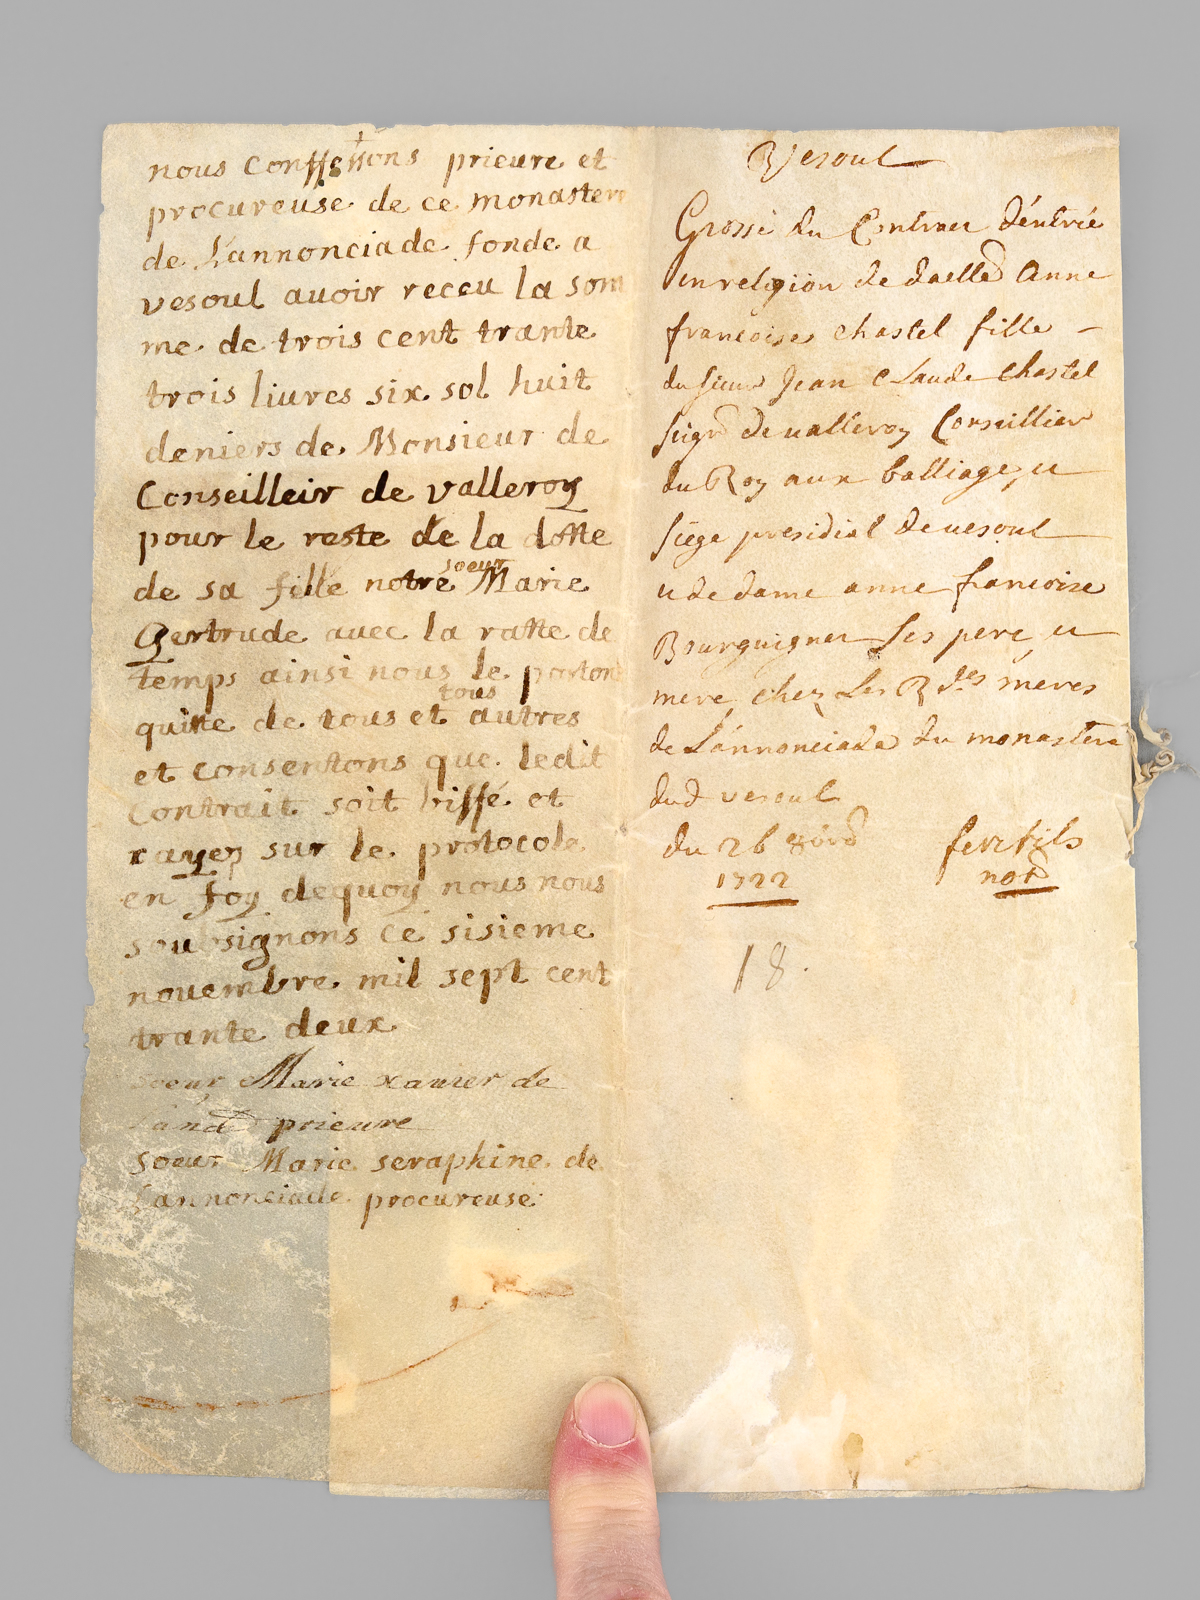 nous Conffessons prieure et
procureuse de ce monastere
de L'annonciade fonde a
vesoul auoir receu la som
me de trois cent trante
trois liures six sol huit
deniers de Monsieur de
Conseilleir de valleroy
pour le reste de la dotte
de sa fille notre soeur Marie
Gertrude avec la ratte de
temps ainsi nous le partons
quitte de tous et tous autres
et consentons que ledit
Contrait soit biffé et
rayez sur le protocole
en foy dequoy nous nous
soubsignons ce sisieme
novembre mil sept cent
trante deux
soeur Marie xauier de
prieure
soeur Marie seraphine de
Lannonciade procureuse
Vesoul
Grosse du Contract d'éntrée
en religion de dlle Anne
francoise chastel fille
du sieur Jean Claude Chastel
seigr de valleroy Conseillier
du Roy aux balliage et
siége presidial de vesoul
et de dame anne francoise
Bourguignet ses pere et
mere, chez Les Rdes meres
de L'annonciade du monastere
dud vesoul
du 26 8bre
1722
fertils
not
18.